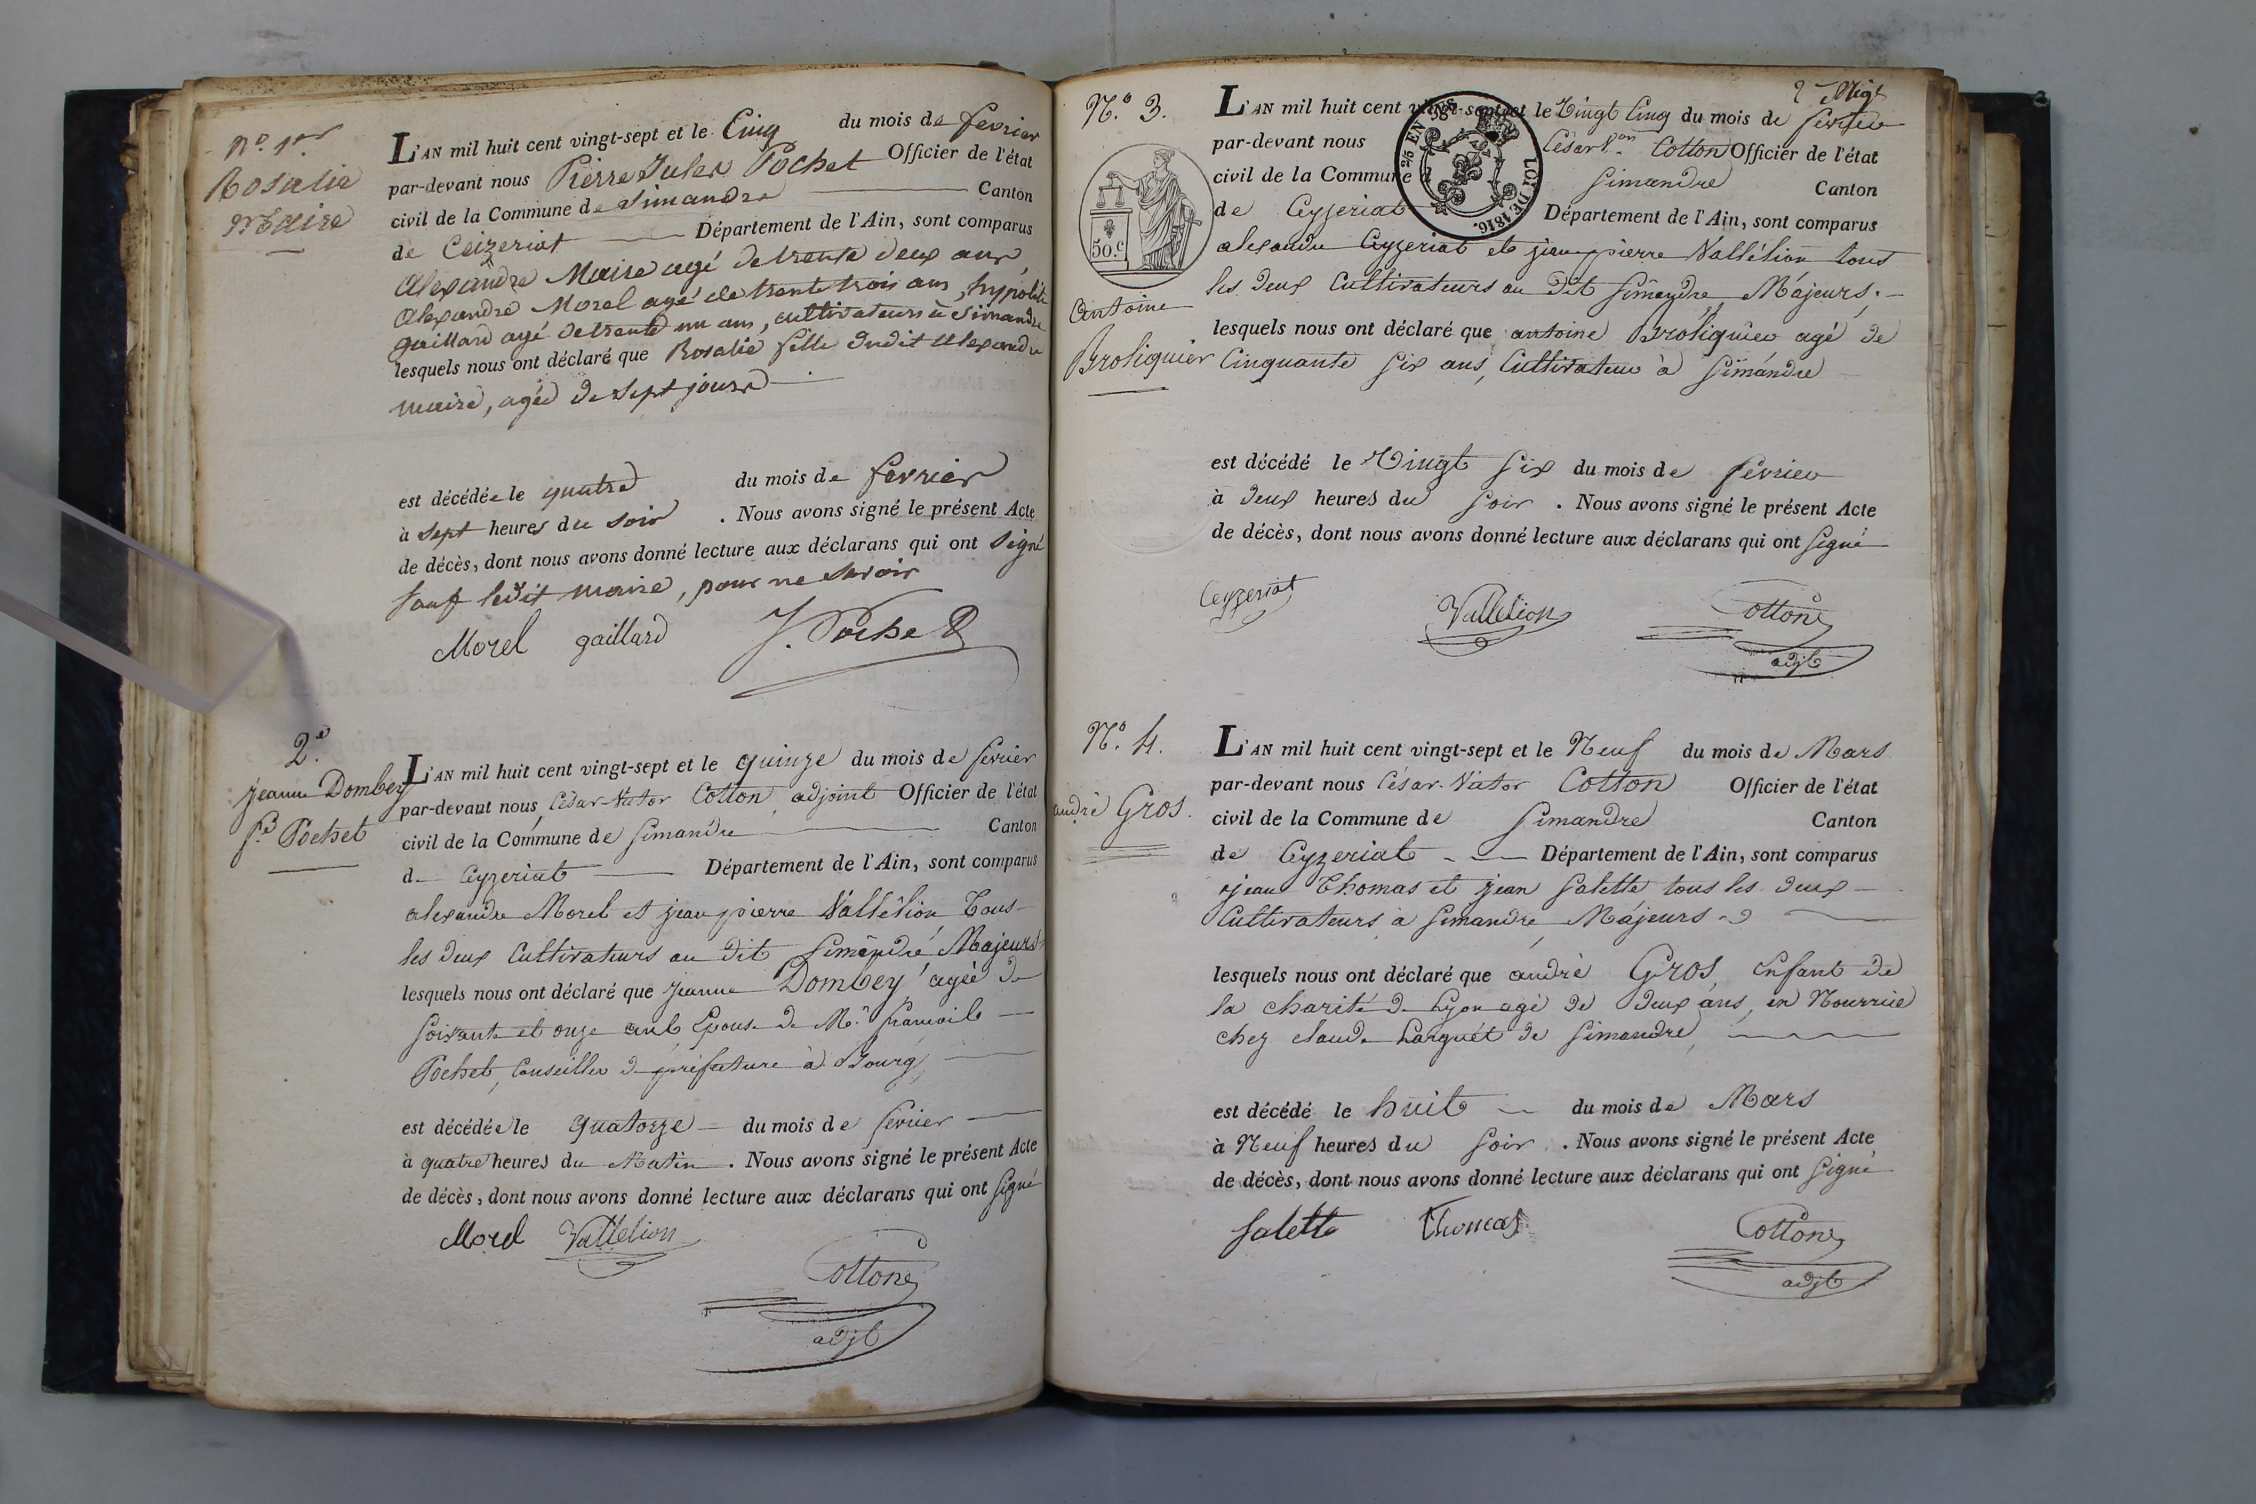 N.º 1er
Rosalie
Maire
L'AN mil huit cent vingt-sept et le Cinq du mois de fevrier
par-devant nous Pierre Jules Pochet Officier de l'état
civil de la Commune de Simandre Canton
de Ceizeriat Département de l'Ain, sont comparus
Alexandre Maire agé de trente deux ans,
Alexandre Morel agé de trente trois ans, hypolite
gaillard agé de trente un ans, cultivateurs à Simandre
lesquels nous ont déclaré que Rosalie fille dudit Alexandre
maire, agée de sept jours
est décédée le quatre du mois de fevrier
à sept heures du soir. Nous avons signé le présent Acte
de décès, dont nous avons donné lecture aux déclarans qui ont signé
sauf ledit maire, pour ne savoir
Morel gaillard J. Pochet
2.e
jeanne Dombey
f.e Pochet
L'AN mil huit cent vingt-sept et le quinze du mois de fevrier
par-devant nous César-Victor Cotton, adjoint Officier de l'état
civil de la Commune de Simandre Canton
de Ceyzeriat Département de l'Ain, sont comparus
alexandre Morel et jean pierre Vallélion Tous
les deux Cultivateurs au dit Simandre Majeurs
lesquels nous ont déclaré que jeanne Dombey agée de
soixante et onze ans Epouse de M.r francois
Pochet, Conseiller de préfecture à Bourg,
est décédée le quatorze du mois de fevrier
à quatre heures du Matin. Nous avons signé le présent Acte
de décès, dont nous avons donné lecture aux déclarans qui ont signé
Morel Vallelion
Cotton
adjt
N.º 3.
50.c
25 EN SUS
LOI DE 1816.
antoine
Broliquier
L'AN mil huit cent vingt-sept et le Vingt Cinq du mois de fevrier
par-devant nous César V.or Cotton Officier de l'état
civil de la Commune d Simandre Canton
de Ceyzeriat Département de l'Ain, sont comparus
alexandre Ceyzeriat et jean pierre Vallélion tous
les deux Cultivateurs au dit Simandre, Májeurs,
lesquels nous ont déclaré que antoine Broliquier agé de
Cinquante Six ans, Cultivateur à Simandre
est décédé le Vingt Six du mois de fevrier
à deux heures du Soir. Nous avons signé le présent Acte
de décès, dont nous avons donné lecture aux déclarans qui ont signé
Ceyzeriat Vallelion Cotton
adjt
N.º 4.
andré Gros.
L'AN mil huit cent vingt-sept et le Neuf du mois de Mars
par-devant nous César-Victor Cotton Officier de l'état
civil de la Commune de Simandre Canton
de Ceyzeriat Département de l'Ain, sont comparus
jean Thomas et jean Salette tous les deux
Cultivateurs à Simandre, Májeurs
lesquels nous ont déclaré que andré Gros, Enfant de
la charité de Lyon agé de deux ans, en Nourrice
chez claude Larguét de Simandre,
est décédé le huit du mois de Mars
à Neuf heures du Soir. Nous avons signé le présent Acte
de décès, dont nous avons donné lecture aux déclarans qui ont Signé
Salette Thomas Cotton
adjt